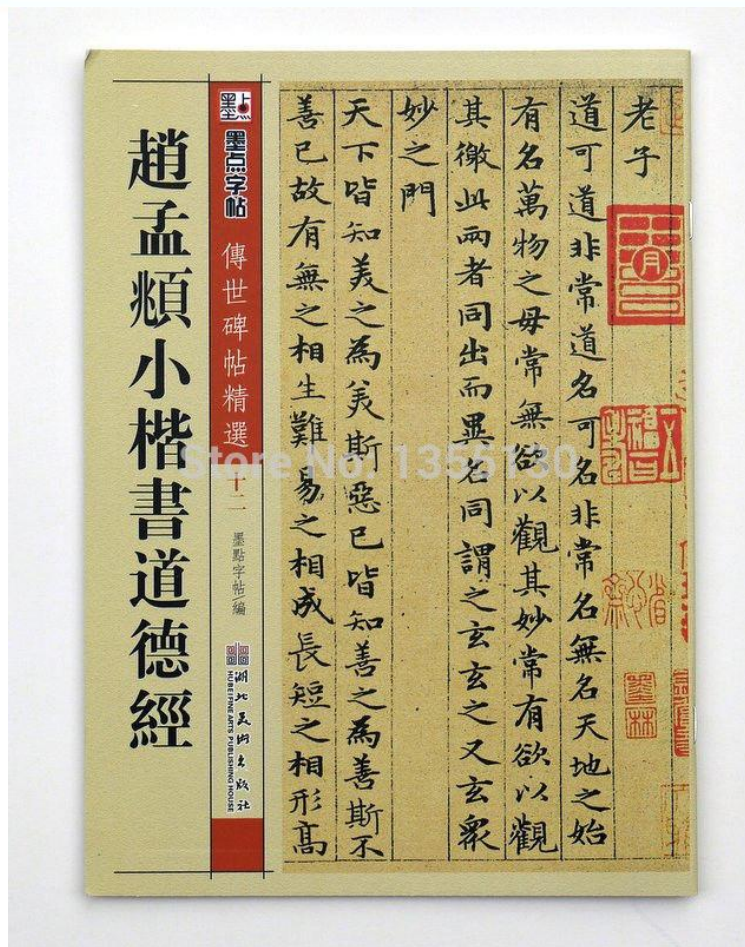 趙孟頫小楷書道德經
墨点字帖
傳世碑帖精選
十二
墨點字帖/編
湖北美術出版社
HUBEI FINE ARTS PUBLISHING HOUSE
老子
道可道非常道名可名非常名無名天地之始
有名萬物之母常無欲以觀其妙常有欲以觀
其徼此兩者同出而異名同謂之玄玄之又玄眾
妙之門
天下皆知美之為美斯惡已皆知善之為善斯不
善已故有無之相生難易之相成長短之相形高
墨林
Store No: 1355130